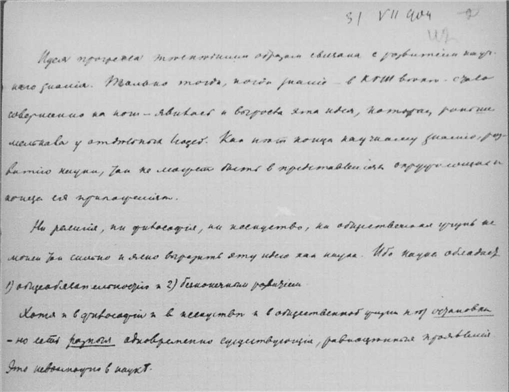 31 VII 904
Идея прогресса теснейшим образом связана с развитием науч-
ного знания. Только тогда, когда знание – в XVII веке – стало
совершенно на ноги – явилась и выросла эта идея, которая раньше
у отдельных людей. Как нет конца научному знанию, раз-
витию науки, так не может быть в представлениях
конца ея приложениям.
Ни религия, ни философия, ни искусство, ни общественная жизнь не
может так сильно и ясно выразить эту идею как наука. Ибо наука обладает
1) общеобязательностью и 2) бесконечным развитием.
Хотя и в философии и в искусстве и в общественной жизни нет остановки
– но есть разныя одновременно существующия, равноценныя проявления
Это невозможно в науке.